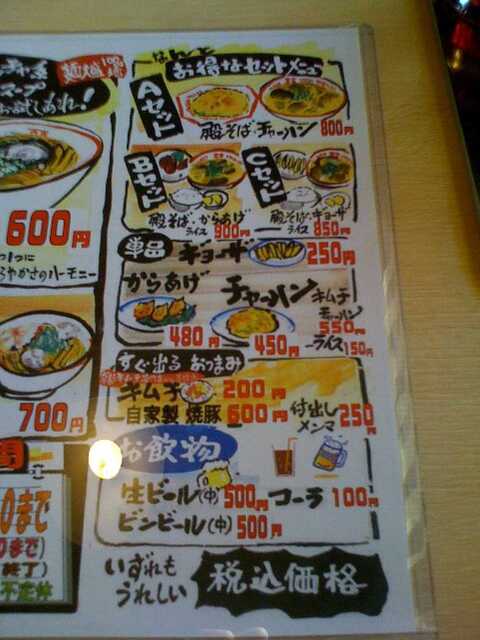 スープ
お試しあれ!
麺大盛100円増
600円
つ1つに
やかさのハーモニー
700円
0まで
まで)
終了)
不定休
お得なセットメニュー
Aセット
殿そば・チャーハン 800円
Bセット
殿そば・からあげ
ライス 900円
Cセット
殿そば・ギョーザ
ライス 850円
単品
ギョーザ 250円
からあげ
480円
チャーハン
450円
キムチ
チャーハン
550円
ライス150円
すぐ出る おつまみ
キムチ 200円
自家製 焼豚 600円
付出し
メンマ 250円
お飲物
生ビール(中) 500円
コーラ 100円
ビンビール(中) 500円
いずれも
うれしい
税込価格